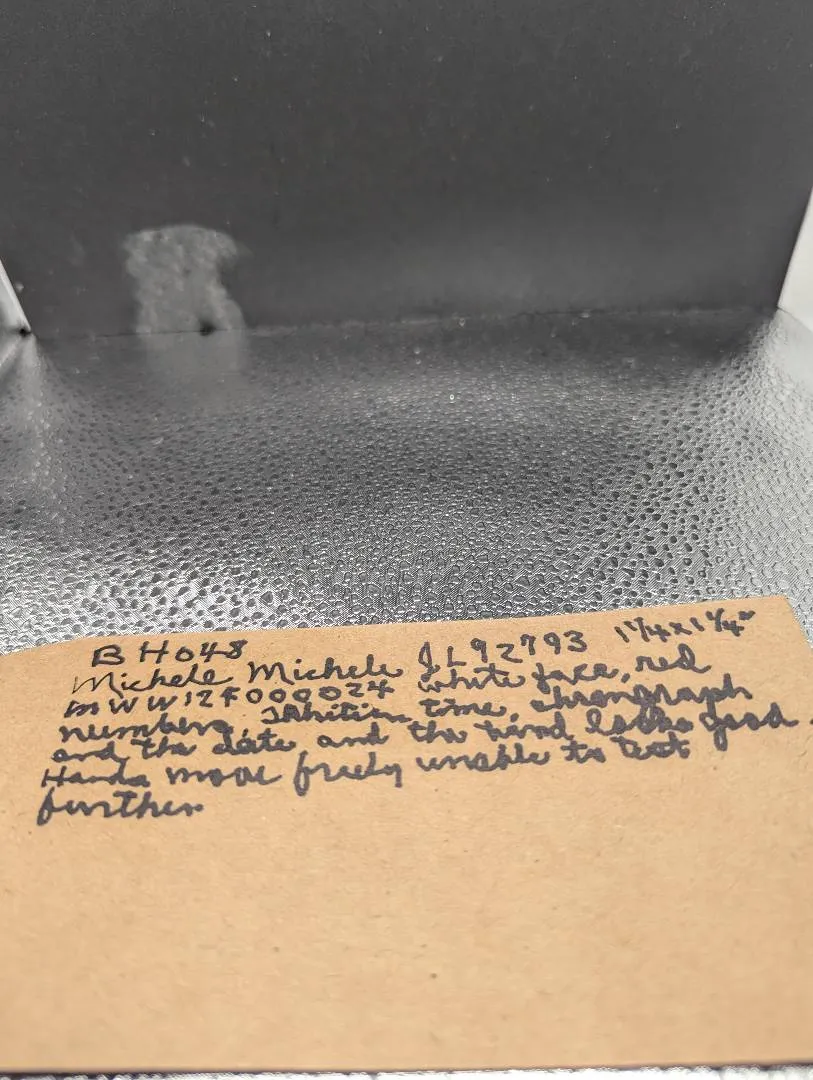 BH048
Michele Michele JL92793 1 1/4 x 1 1/4"
MWW12F000024 white face, red
numbers, Tahitian time, chronograph
and the date, and the band looks good.
Hands move freely unable to test
further